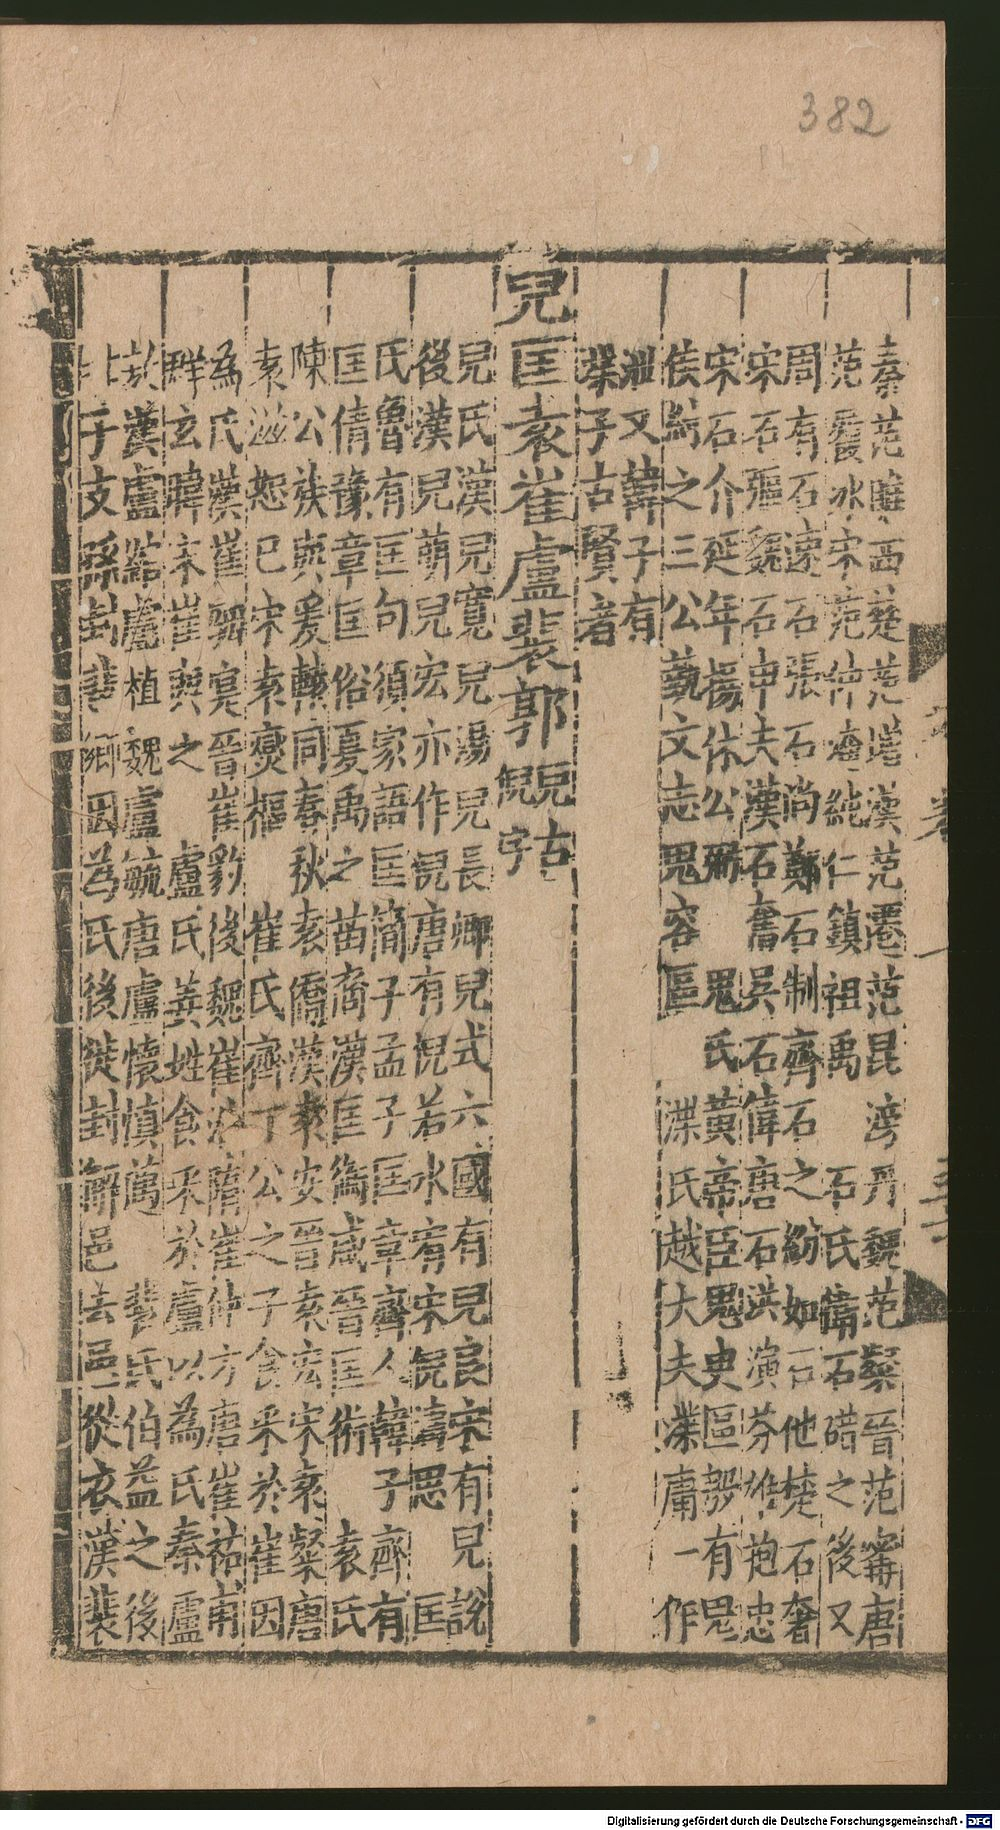 382
秦范雎西楚范增漢范遷范昆滂丹魏范粲晉范甯唐
范履冰宋范仲淹純仁鎮祖禹 石氏衛石碏之後又
周有石速石張石尚鄭石制齊石之紛如石他楚石奢
宋石彄魏石申夫漢石奮吳石偉唐石洪演芬雄抱忠
宋石介延年揚休公弼 罳氏黃帝臣罳史區鄋有罳
侯綺之三公藝文志罳容區 渫氏越大夫渫庸一作
泄又韓子有
渫子古賢者
兒匡袁崔盧裴郭 兒古倪字
兒氏漢兒寬兒湯兒長卿兒式六國有兒良宋有兒說
後漢兒萌兒宏亦作倪唐有倪若水有宋倪濤思 匡
氏魯有匡句須家語匡簡子孟子匡章齊人韓子齊有
匡倩豫章匡俗夏禹之苗裔漢匡衡咸晉匡術 袁氏
陳公族與爰轅同春秋袁僑漢袁安晉袁宏宋袁粲唐
袁滋恕已宋袁燮樞 崔氏齊丁公之子食采於崔因
為氏漢崔駰寔晉崔豹後魏崔浩隋崔仲方唐崔祐甫
群玄暐宋崔與之 盧氏姜姓食采於盧以為氏秦盧
敖漢盧綰盧植魏盧毓唐盧懷慎藎 裴氏伯益之後
非子支孫封裴鄉因為氏後徙封解邑去邑從衣漢裴
卷一
Digitalisierung gefördert durch die Deutsche Forschungsgemeinschaft - DFG